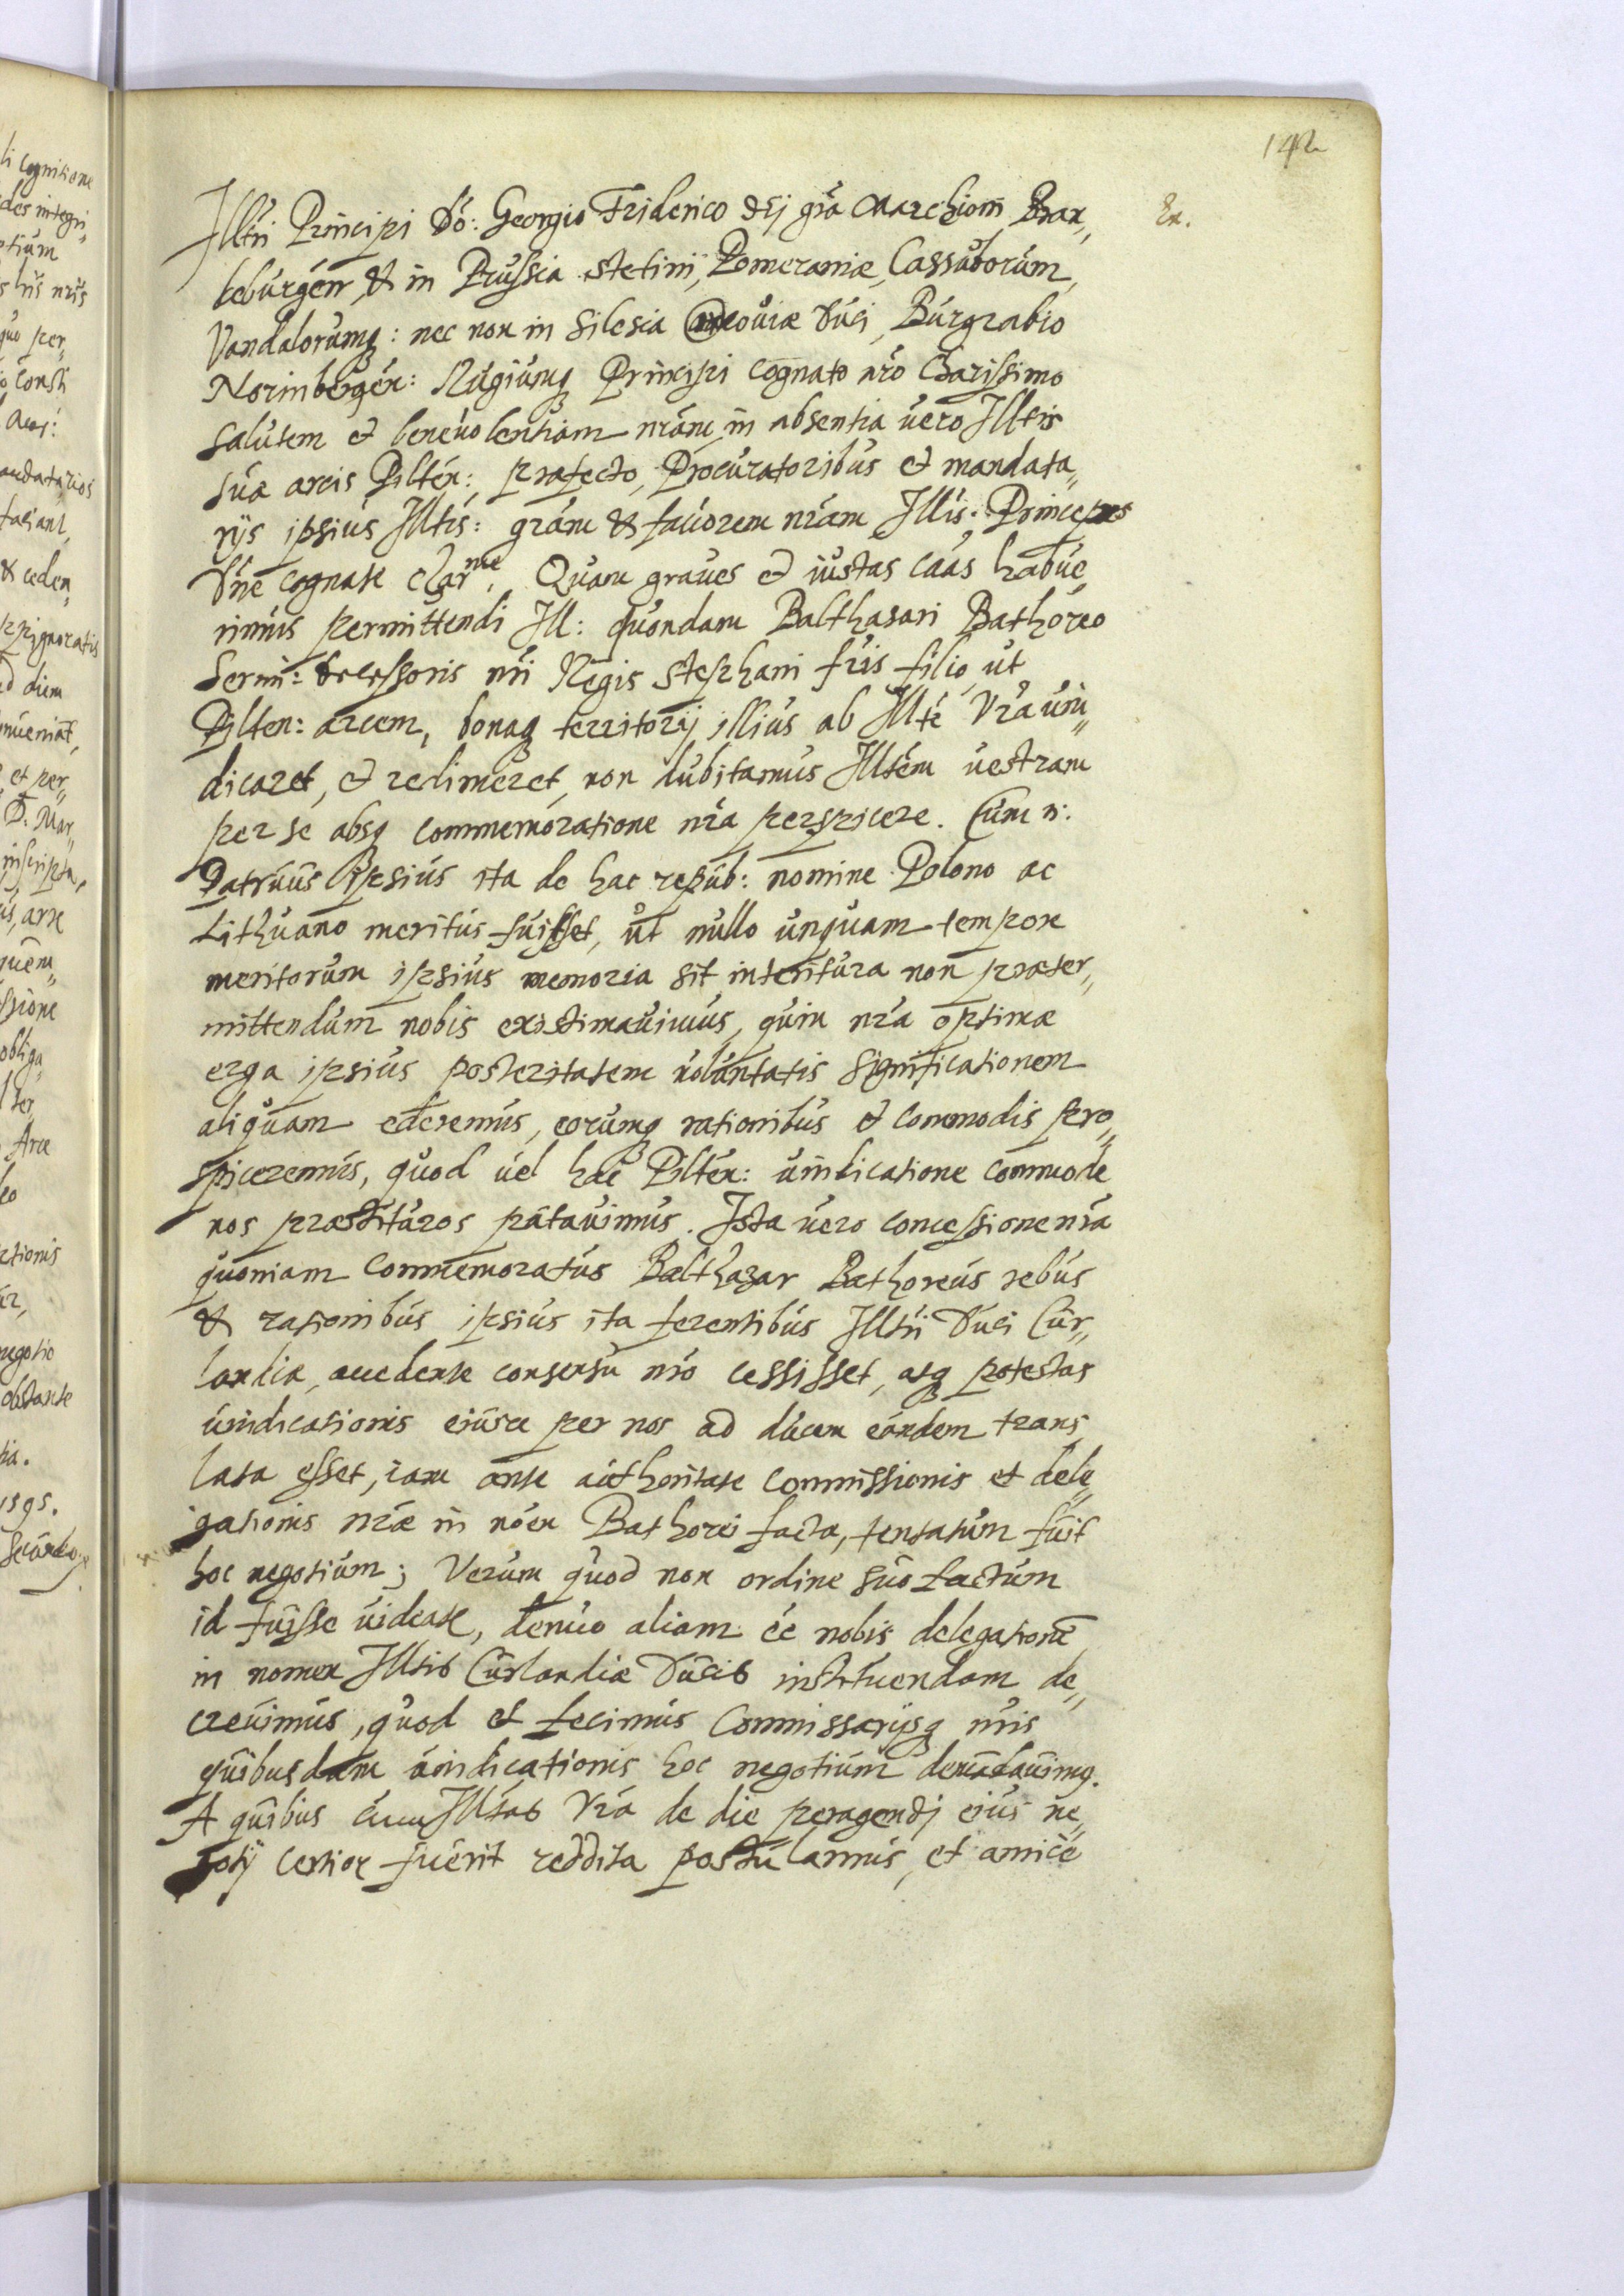 142
Illri Principi Dō: Georgio Friderico Dei grā Marchioni Bran„
deburgen, & in Prussia Stetini, Pomeraniæ, Cassuborum,
Vandalorumq: nec non in Silesia Duci, Burgrabio
Norinbergen: Rugiumq Principi Cognato nro Charissimo
salutem et benevolentiam nram, in absentia vero Illtis
suæ arcis Pilten: præfecto, Procuratoribus et mandata„
rijs ipsius Illtis: gram & favorem nram Illis: Princeps
Dne cognate Char me. Quam graves et iustas cāas habue„
rimus permittendi Ill: quondam Balthasari Bathoreo
Serm: decessoris nri Regis Stephani fris filio, ut
Pilten: arcem, bonaq territorij illius ab Illte Vra vin„
dicaret, et redimeret, non dubitamus Illtem vestram
per se absq commemoratione nra perspicere. Cum n:
Patruus ipsius ita de hac repub: nomine Polono ac
Lithuano meritus fuisset, ut nullo unquam tempore
meritorum ipsius memoria sit interitura non præter„
mittendum nobis existimavimus, quin nra optimæ
erga ipsius posteritatem voluntatis significationem
aliquam ederemus, eorumq rationibus et commodis pro„
spiceremus, quod vel hac Pilten: vindicatione commode
nos præstituros putavimus. Ista vero concessione nra
quoniam Commemoratus Balthazar Bathoreus rebus
& rationibus ipsius ita ferentibus Illri Duci Cur„
landiæ, accedente consensu nro cessisset, atq potestas
vindicationis eiusce per nos ad ducem eundem trans„
lata esset, iam ante authoritate Commissionis et dele„
gationis nræ in noen Bathorei facta, tentatum fuit
hoc negotium; Verum quod non ordine suo factum
id fuisse videate, denuo aliam ee nobis delegatione
in nomen Illtis Curlandiæ Ducis instituendam de„
crevimus, quod et fecimus Commissarijsq nris
quibusdam vindicationis hoc negotium demādavimq.
A quibus cum Illtas Vra de die peragendi eius ne„
gotij certior fuerit reddita postulamus, et amice